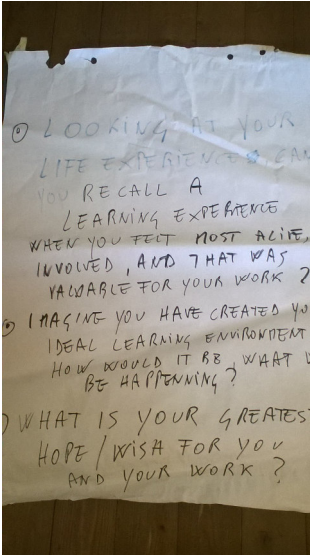 LOOKING AT YOUR
LIFE EXPERIENCE, CAN
YOU RECALL A
LEARNING EXPERIENCE
WHEN YOU FELT MOST ALIVE,
INVOLVED, AND THAT WAS
VALUABLE FOR YOUR WORK?
IMAGINE YOU HAVE CREATED YO
IDEAL LEARNING ENVIRONMENT
HOW WOULD IT BE, WHAT W
BE HAPPENNING?
WHAT IS YOUR GREATEST
HOPE/WISH FOR YOU
AND YOUR WORK?